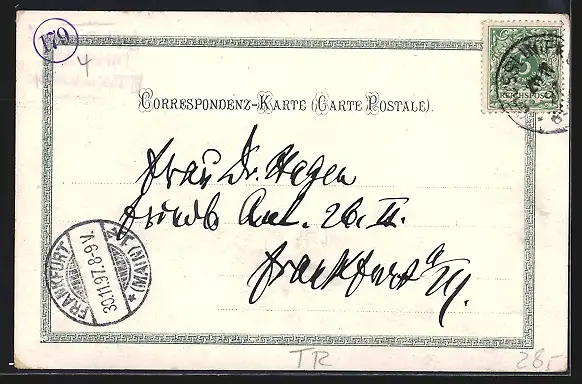 179
4
5
REICHSPOST
CORRESPONDENZ-KARTE (CARTE POSTALE).
Frau Dr. Hagen
26. II.
Frankfurt a/M.
FRANKFURT (MAIN)
30.11.97. 8-9 V.
TR
28,-